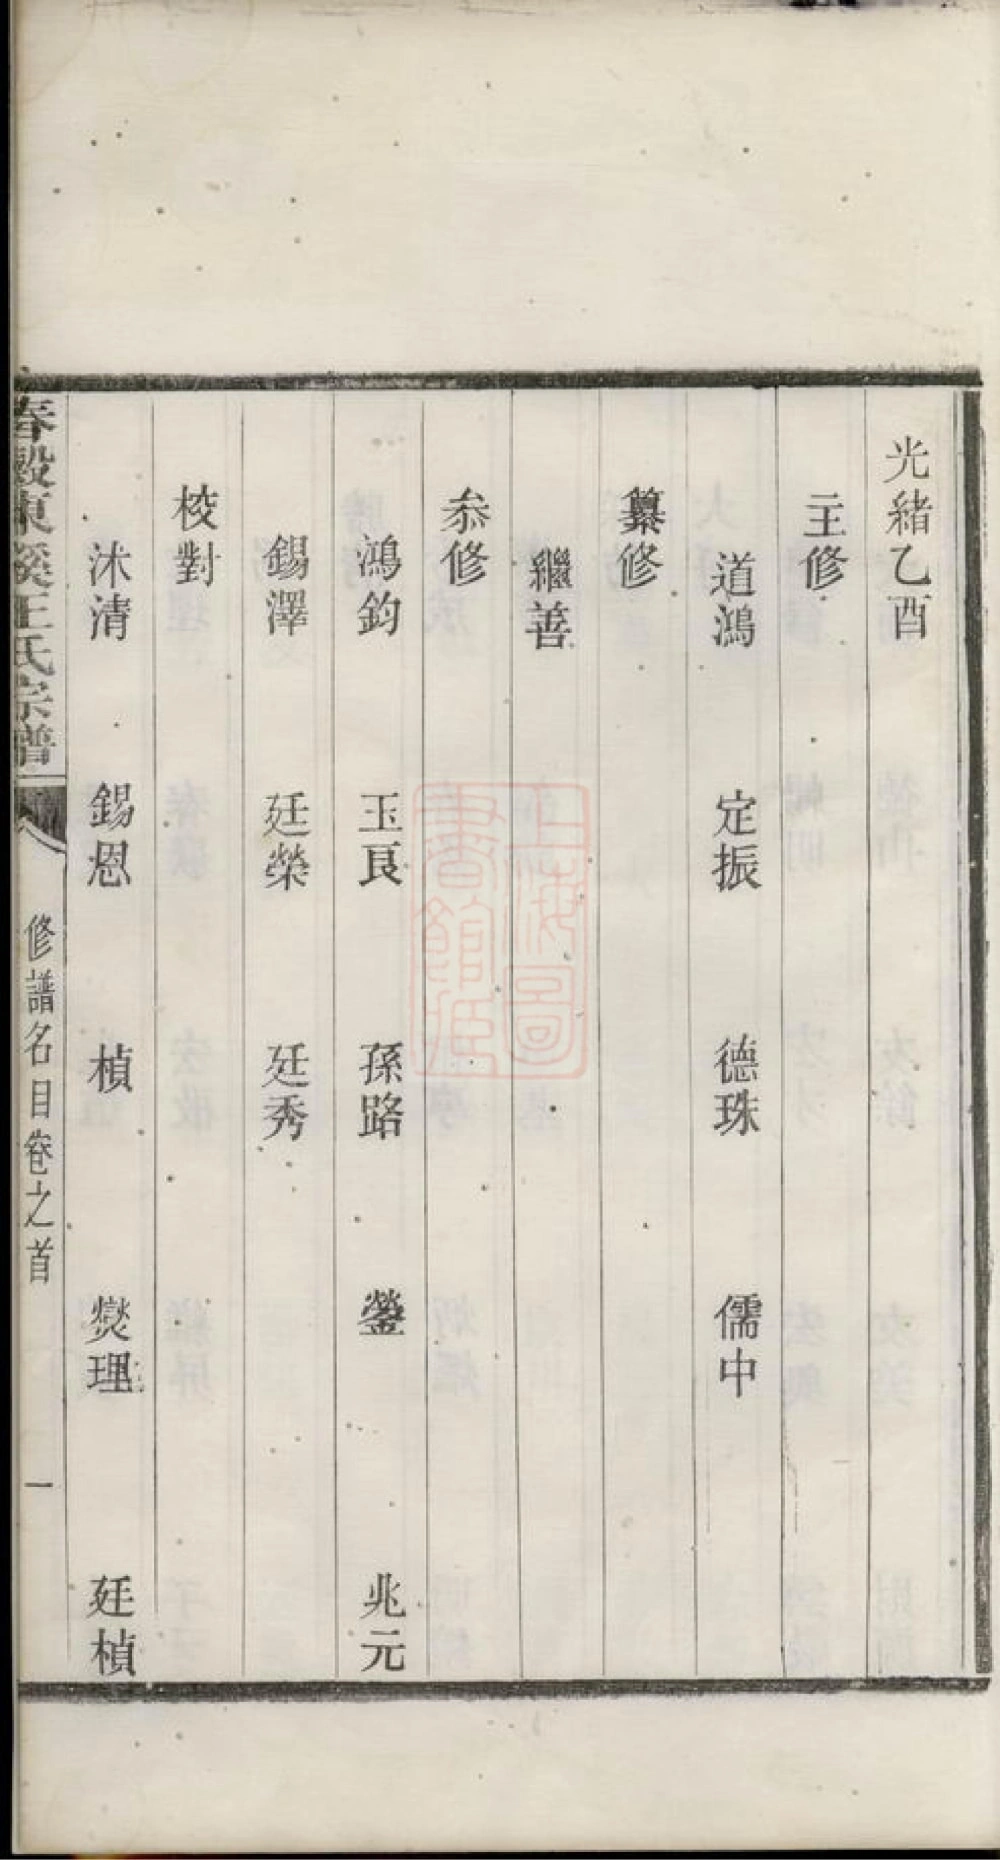 光緒乙酉
主修
道鴻 定振 德珠 儒中
纂修
繼善
叅修
鴻鈞 玉良 孫路 鎣 兆元
錫澤 廷榮 廷秀
校對
沐清 錫恩 楨 爕理 廷楨
春穀東溪王氏宗譜 修譜名目卷之首 一
上海圖書館藏